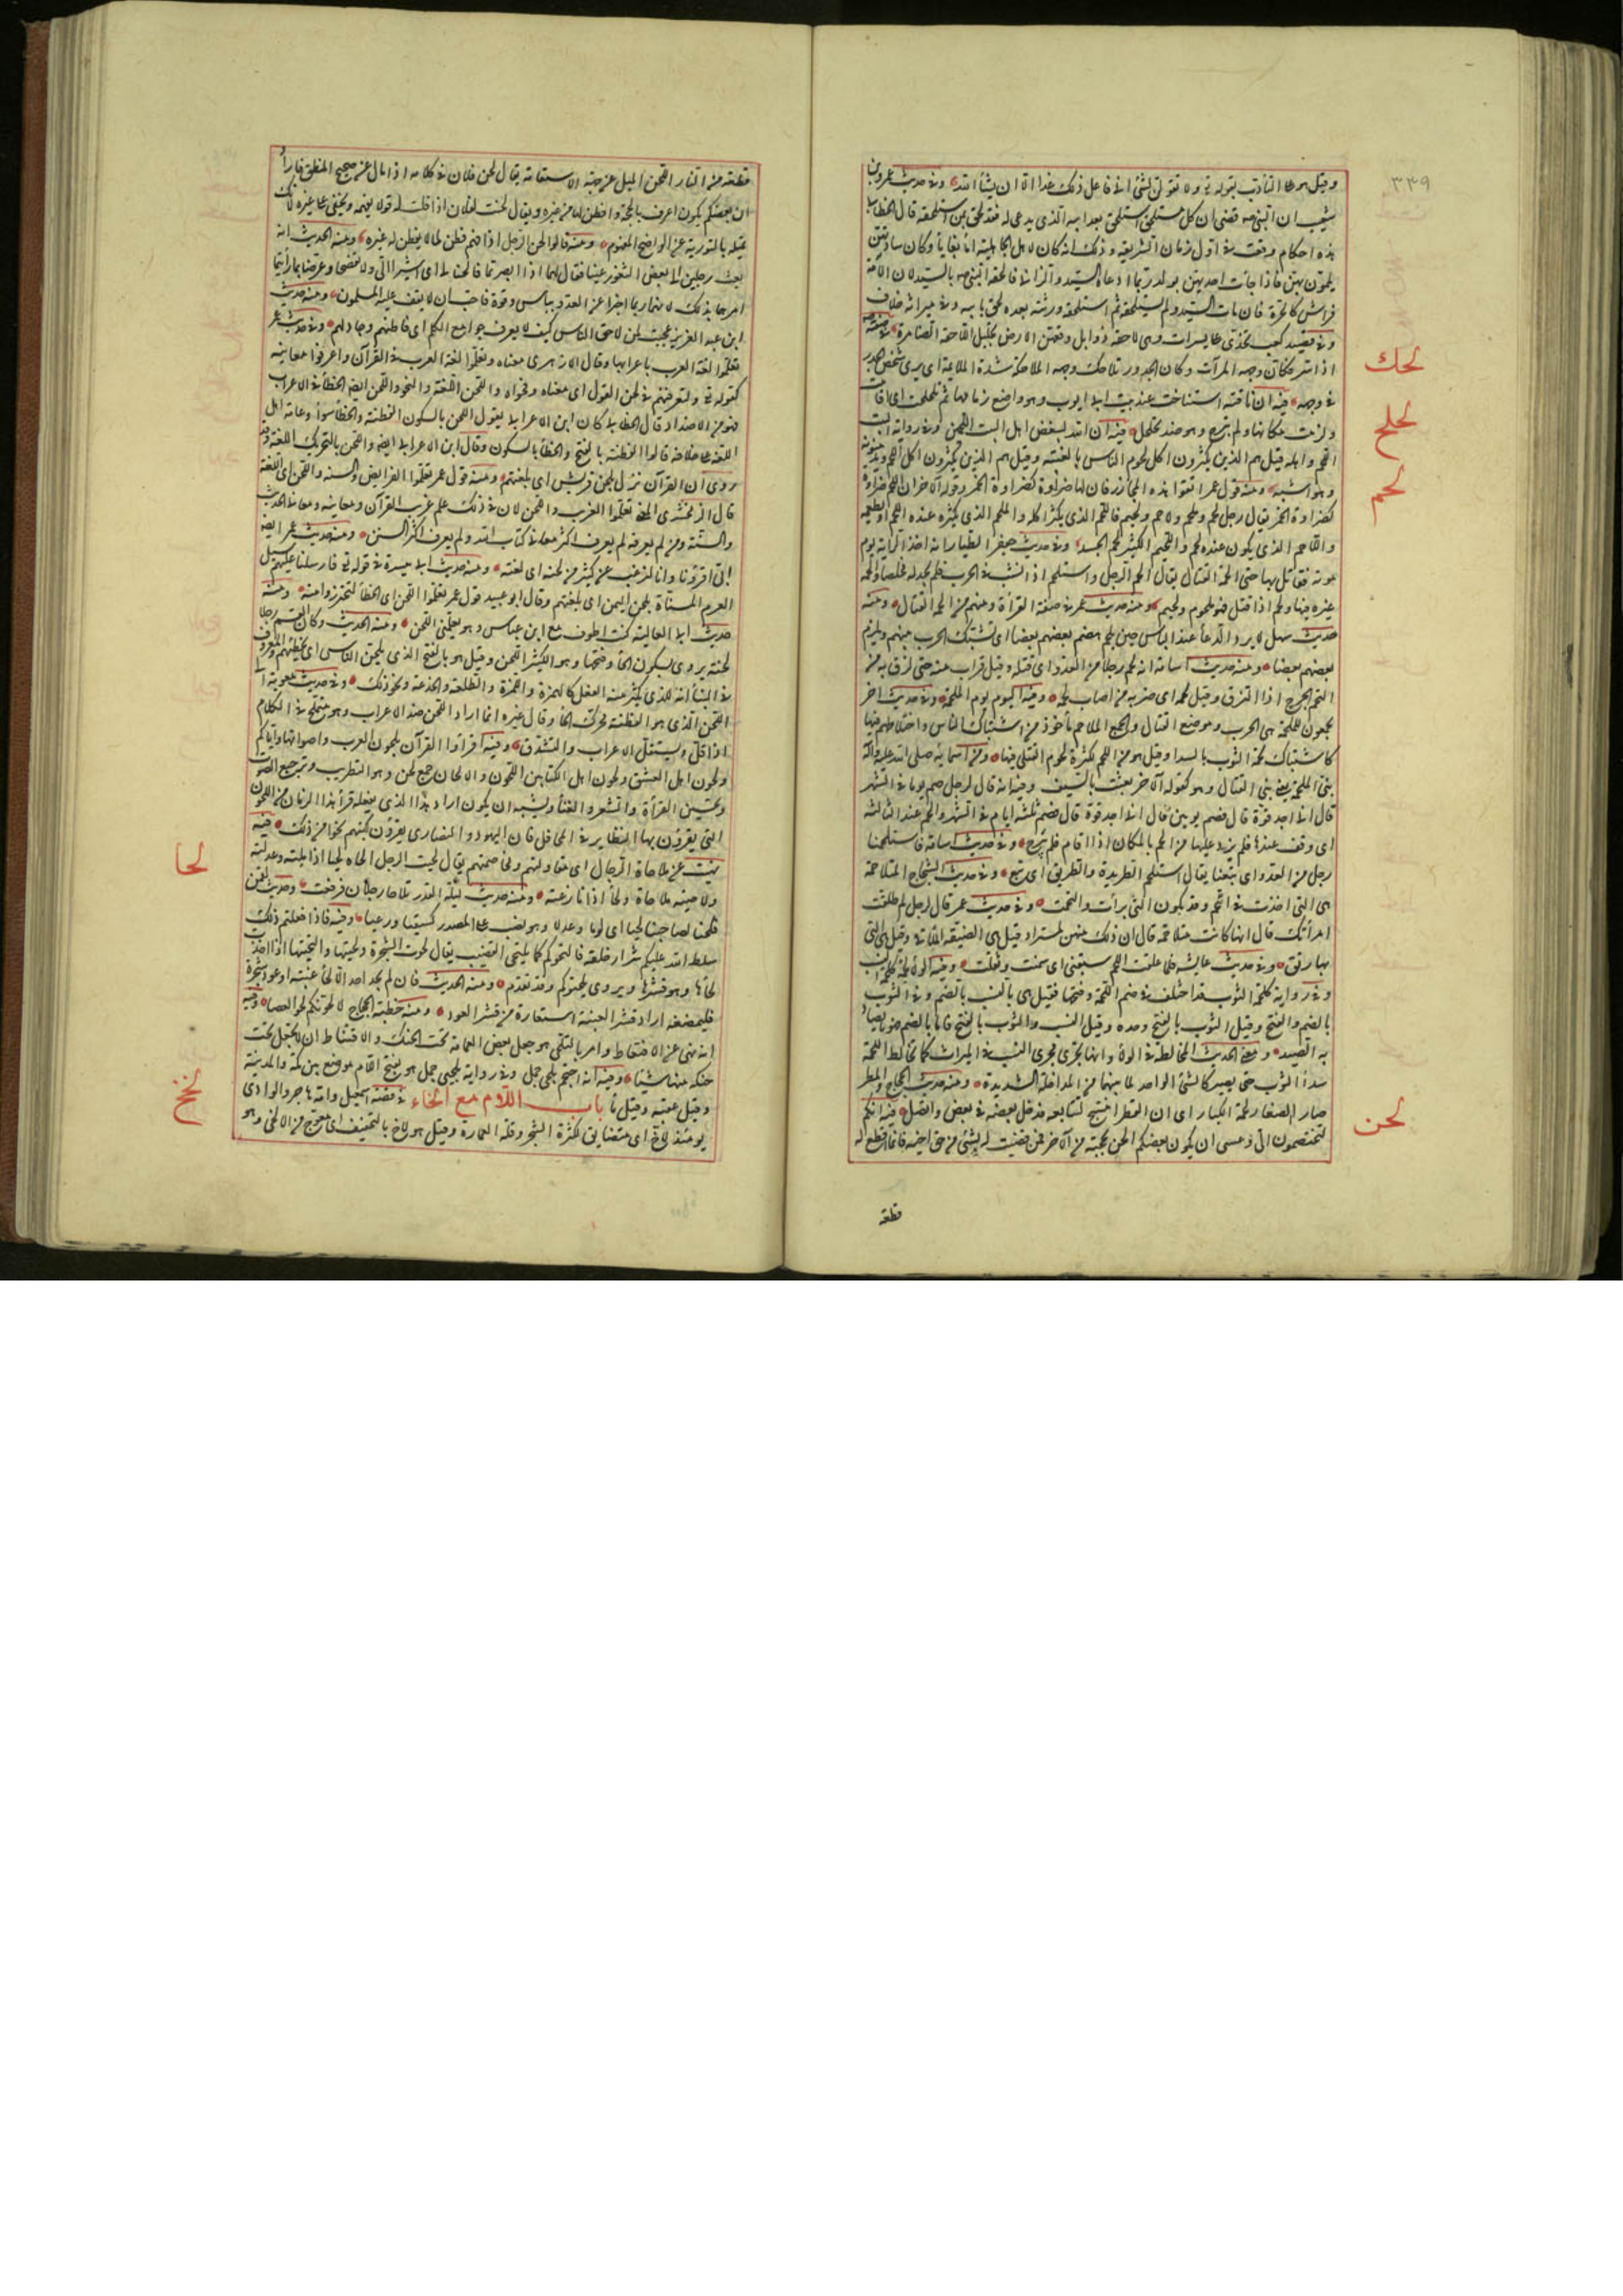 ٣٣٩
وقيل هو على التأدب بقوله تع ولا تقولن لشئ انى فاعل ذلك غدا الا ان يشأ الله وفى حديث عمرو بن
شعيب ان النبى صه قضى ان كل مستلحق استلحق بعد ابيه الذى يدعى له فقد لحق بمن استلحقه قال الخطابى
هذه احكام وقعت فى اول زمان الشريعة وذلك انه كان لاهل الجاهلية امأ بغايا وكان سادتهن
يلمون بهن فاذا جأت احديهن بولد ربما ادعاه السيد والزانى فالحقه النبى صه بالسيد لان الامة
فراش كالحرة فان مات السيد ولم يستلحقه ثم استلحقه ورثته بعده لحق بابيه وفى ميراثه خلاف
وفى قصيد كعب تخدى على يسرات وهى لاحقة ذوابل وقعهن الارض تحليل اللاحقة الضامرة فى صفته
اذا سر فكأن وجهه المرآت وكان الجدر تلاحك وجهه الملاحكة شدة الملايمة اى يرى شخص الجدر
لحك
فى وجهه فيه ان ناقته استناخت عند بيت ابى ايوب وهو واضع زمامها ثم تلحلحت اى اقامت
ولزمت مكانها ولم تبرح وهو ضد تحلحل فيه ان الله ليبغض اهل البيت اللحمين وفى رواية البيت
لحلح
اللحم واهله قيل هم الذين يكثرون اكل لحوم الناس بالغيبة وقيل هم الذين يكثرون اكل اللحم ويدمنونه
وهو اشبه ومنه قول عمر اتقوا هذه المجازر فان لها ضراوة كضراوة الخمر وقوله الآخر ان للحم ضراوة
لحم
كضراوة الخمر يقال رجل لحم وملحم ولاحم ولحيم فاللحم الذى يكثر اكله والملحم الذى يكثر عنده اللحم او يطعمه
واللاحم الذى يكون عنده لحم واللحيم الكثير لحم الجسد وفى حديث جعفر الطيار انه اخذ الراية يوم
موته فقاتل بها حتى الحمه القتال يقال الحم الرجل واستلحم اذا نشب فى الحرب فلم يجد له مخلصا والحمه
غيره فيها ولحم اذا قتل فهو ملحوم ولحيم ومنه حديث عمر فى صفة الغزاة ومنهم من الحمه القتال ومنه
حديث سهل لا يرد الدعأ عند البأس حين يلحم بعضهم بعضا اى تشتبك الحرب بينهم ويلزم
بعضهم بعضا ومنه حديث اسامة انه لحم رجلا من العدو اى قتله وقيل قرب منه حتى لزق به من
التحم الجرح اذا التزق وقيل لحمه اى ضربه من اصاب لحمه وفيه اليوم يوم الملحمة وفى حديث اخر
يجمعون للملحمة هى الحرب وموضع القتال والجمع الملاحم مأخوذ من اشتباك الناس واختلاطهم فيها
كاشتباك لحمة الثوب بالسدا وقيل هو من اللحم لكثرة لحوم القتلى فيها ومن اسمائه صلى الله عليه وآله
نبى الملحمة يعنى نبى القتال وهو كقوله الآخر بعثت بالسيف وفيه انه قال لرجل صم يوما فى الشهر
قال انى اجد قوة قال فصم يومين قال انى اجد قوة قال فصم ثلثة ايام فى الشهر والحم عند الثالثة
اى وقف عندها فلم يزد عليها من الحم بالمكان اذا اقام فلم يبرح وفى حديث اسامة فاستلحمنا
رجل من العدو اى تبعنا يقال استلحم الطريدة والطريق اى تبع وفى حديث الشجاج المتلاحمة
هى التى اخذت فى اللحم وقد تكون التى برأت والتحمت وفى حديث عمر قال لرجل لم طلقت
امرأتك قال انها كانت متلاحمة قال ان ذلك منهن لمستراد قيل هى الضيقة الملاقى وقيل هى التى
بها رتق وفى حديث عايشة فلما علقت اللحم سبقنى اى سمنت وثقلت وفيه الولأ لحمة كلحمة النسب
وفى رواية كلحمة الثوب قد اختلف فى ضم اللحمة وفتحها فقيل هى بالنسب بالضم وفى الثوب
بالضم والفتح وقيل الثوب بالفتح وحده وقيل النسب والثوب بالفتح فاما بالضم فهو ما يصاد
به الصيد ومعنى الحديث المخالطة فى الولأ وانها تجرى مجرى النسب فى الميراث كما تخالط اللحمة
سدأ الثوب حتى يصير كالشئ الواحد لما بينهما من المداخلة الشديدة ومنه حديث الحجاج والمطر
صار الصغار لحمة الكبار اى ان القطر انتسج لتتابعه فدخل بعضه فى بعض واتصل فيه انكم
لتختصمون الى وعسى ان يكون بعضكم الحن بحجته من الآخر فمن قضيت له بشئ من حق اخيه فانما اقطع له
لحن
قطعة
قطعة من النار اللحن الميل عن جهة الاستقامة يقال لحن فلان فى كلامه اذا مال عن صحيح المنطق فاراد
ان بعضكم يكون اعرف بالحجة وافطن لها من غيره ويقال لحنت لفلان اذا قلت له قولا يفهمه ويخفى على غيره لانك
تميله بالتورية عن الواضح المفهوم ومنه قالوا لحن الرجل اذا فهم وفطن لما لا يفطن له غيره ومنه الحديث انه
بعث رجلين الى بعض الثغور عينا فقال لهما اذا انصرفتما فالحنا لى اى اشيرا الى ولا تفصحا وعرضا بما رأيتما
امرهما بذلك لانهما ربما اخبرا عن العدو بباس وقوة فاحب ان لا يقف عليه المسلمون ومنه حديث
ابن عبد العزيز عجبت لمن لاحن الناس كيف لا يعرف جوامع الكلم اى فاطنهم وجادلهم وفى حديث عمر
تعلموا لغة العرب باعرابها وقال الازهرى معناه وتعلموا لغة العرب فى القرآن واعرفوا معانيه
كقوله تع ولتعرفنهم فى لحن القول اى معناه وفحواه واللحن اللغة والنحو واللحن ايضا الخطأ فى الاعراب
فهو من الاضداد قال الخطابى كان ابن الاعرابى يقول اللحن بالسكون الفطنة والخطأ سواء وعامة اهل
اللغة على خلافه قالوا الفطنة بالفتح والخطأ بالسكون وقال ابن الاعرابى ايضا واللحن بالتحريك اللغة وقد
روى ان القرآن نزل بلحن قريش اى بلغتهم ومنه قول عمر تعلموا الفرايض والسنة واللحن اى اللغة
قال الزمخشرى المعنى تعلموا الغريب واللحن لان فى ذلك علم غريب القرآن ومعانيه ومعانى الحديث
والسنة ومن لم يعرفه لم يعرف اكثر معانى كتاب الله ولم يعرف اكثر السنن ومنه حديث عمر ايضا
ابى اقرؤنا وانا لنرغب عن كثير من لحنه اى لغته ومنه حديث ابى ميسرة فى قوله تع فارسلنا عليهم سيل
العرم المسناة بلحن اليمن اى بلغتهم وقال ابو عبيد قول عمر تعلموا اللحن اى الخطأ لتحترزوا منه ومنه
حديث ابى العالية كنت اطوف مع ابن عباس وهو يعلمنى اللحن ومنه الحديث وكان القسم رجلا
لحنة يروى بسكون الحأ وفتحها وهو الكثير اللحن وقيل هو بالفتح الذى يلحن الناس اى يخطئهم والمعروف
فى البنأ انه للذى يكثر منه الفعل كالهمزة واللمزة والطلعة والخدعة ونحو ذلك وفى حديث معوية
اللحن الذى هو الفطنة محرك الحأ وقال غيره انما اراد اللحن ضد الاعراب وهو يستملح فى الكلام
اذا قل ويستثقل الاعراب والتشدق وفيه اقرأوا القرآن بلحون العرب واصواتها واياكم
ولحون اهل العشق ولحون اهل الكتابين اللحون والالحان جمع لحن وهو التطريب وترجيع الصوت
وتحسين القرأة والشعر والغنأ ويشبه ان يكون اراد هذا الذى يفعله قرأ هذا الزمان من اللحون
التى يقرؤن بها النظاير فى المحافل فان اليهود والنصارى يقرؤن كتبهم نحوا من ذلك فيه
نهيت عن ملاحاة الرجال اى مقاولتهم ومخاصمتهم يقال لحيت الرجل الحاه لحيا اذا لمته وعذلته
لحا
ولاحيته ملاحاة ولحأ اذا نازعته ومنه حديث ليلة القدر تلاحا رجلان فرفعت وحديث لقمن
فلحيا لصاحبنا لحيا اى لوما وعذلا وهو نصب على المصدر كسقيا ورعيا وفيه فاذا فعلتم ذلك
سلط الله عليكم شرار خلقه فالتحوكم كما يلتحى القضيب يقال لحوت الشجرة ولحيتها والتحيتها اذا اخذت
لحأها وهو قشرها ويروى يلحتوكم وقد تقدم ومنه الحديث فان لم يجد احدكم الا لحأ عنبة او عود شجرة
فليمضغه اراد قشر العنبة استعارة من قشر العود ومنه خطبة الحجاج لالحونكم لحو العصا وفيه
انه نهى عن الاقتعاط وامر بالتلحى هو جعل بعض العمامة تحت الحنك والاقتعاط ان لا يجعل تحت
حنكه منها شيئا وفيه انه احتجم بلحى جمل وفى رواية بلحيى جمل هو بفتح اللام موضع بين مكة والمدينة
وقيل عقبة وقيل مأ باب اللام مع الخاء فى قصة اسمعيل وامه هاجر والوادى
لخخ
يومئذ لاخ اى متضايق لكثرة الشجر وقلة العمارة وقيل هو لاخ بالتخفيف اى معوج من الالخى وهو